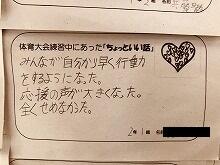 体育大会練習中にあった「ちょっといい話」
みんなが自分から早く行動
をするようになった。
応援の声が大きくなった。
全くせめなかった。
2年 1組 名前